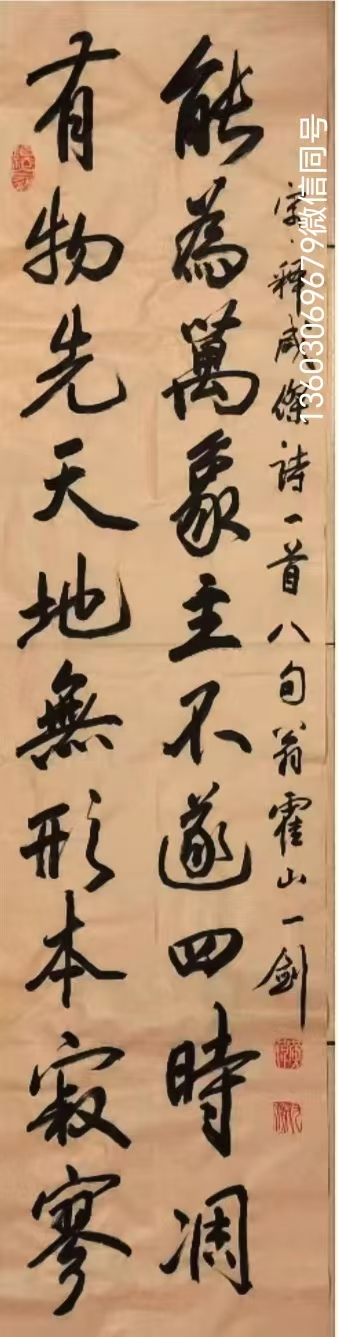 有物先天地無形本寂寥
能為萬象主不遂四時凋
宋·釋咸傑詩一首八旬翁霍山一劍
13603069679微信同号